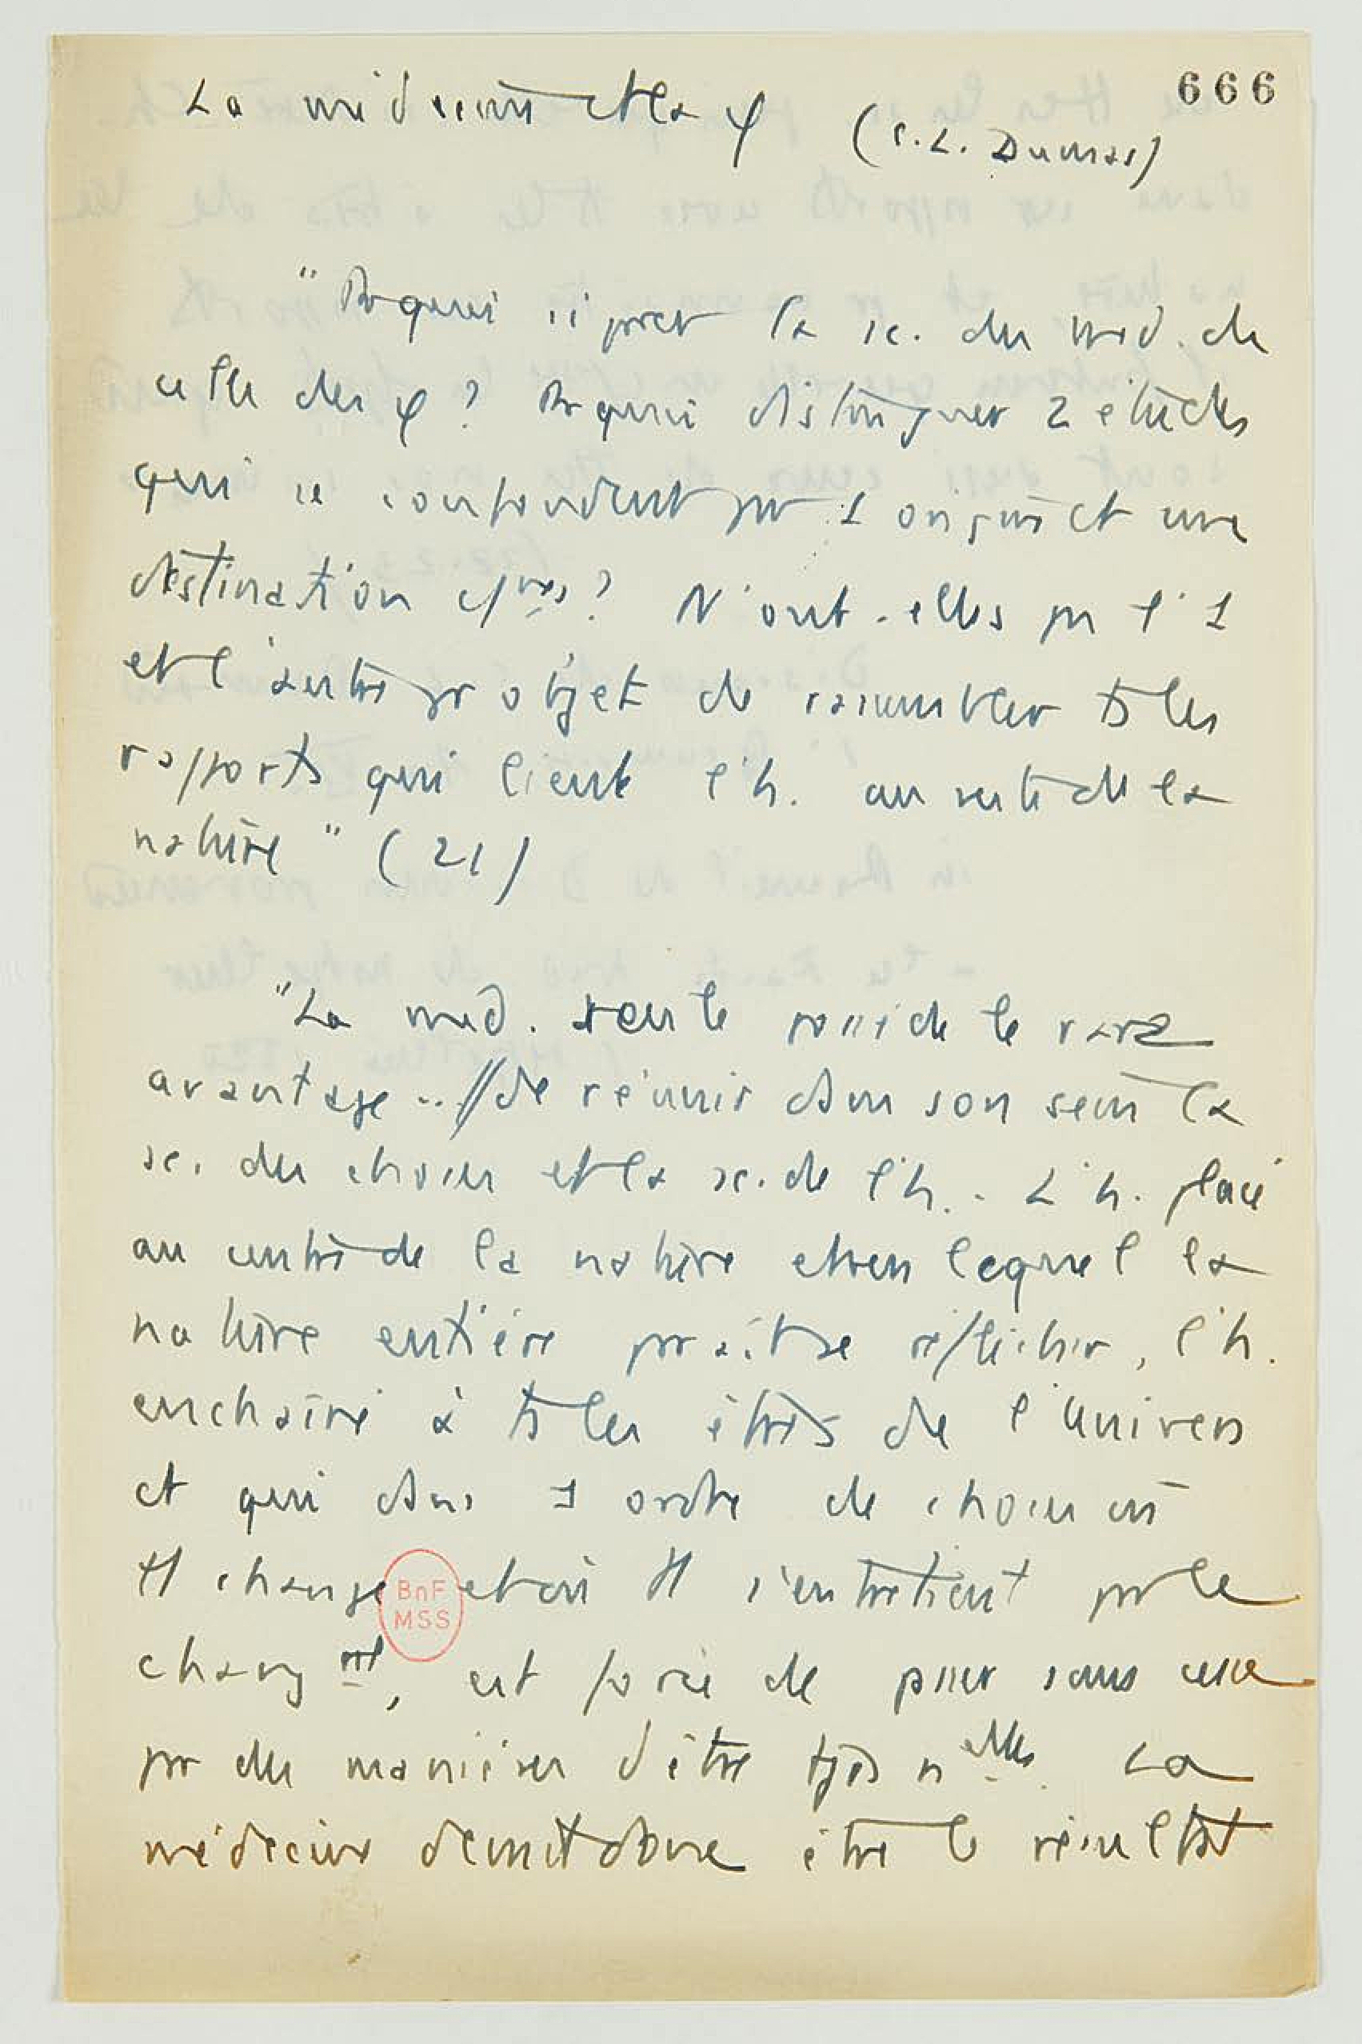 666
La médecine et la φ (C.L. Dumas)
"Pr quoi séparer la sc. du méd. de
celle des φ ? Pr quoi distinguer 2 études
qui se confondent par 1 origine et une
destination cφnes ? N'ont-elles pas l'1
et l'autre pr objet de rassembler ts les
rapports qui lient l'h. au reste de la
nature" (21)
"La méd. seule possède le rare
avantage .. // de réunir dans son sein la
sc. des choses et la sc. de l'h. . L'h. placé
au centre de la nature et vers lequel la
nature entière paraît se réfléchir, l'h.
enchaîné à ts les êtres de l'Univers
et qui dans 1 ordre de choses où
tt change et où tt s'entretient par le
changmt, est forcé de passer sans cesse
par des manières d'être tjrs nelles. La
médecine devait donc être le résultat
BnF
MSS